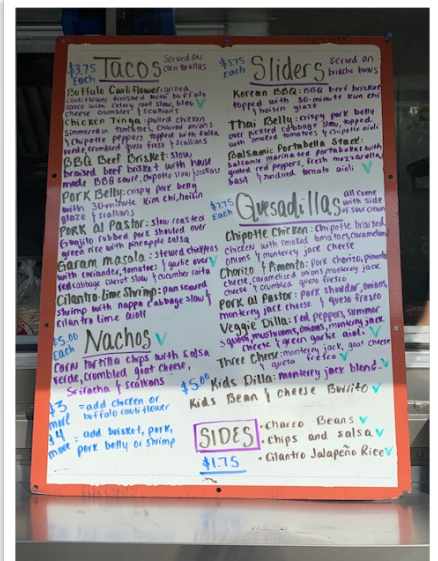 $3.75 Each Tacos Served on corn tortillas
Buffalo Cauliflower: grilled
cauliflower finished with buffalo
sauce with celery root slaw, bleu
cheese crumbles & scallions
Chicken Tinga: pulled chicken
simmered in tomatoes, charred onions
& chipotle peppers topped with salsa
verde, crumbled queso fresh & scallions
BBQ Beef Brisket: slow
braised beef brisket with house
made BBQ sauce, chipotle slaw & scallions
Pork Belly: crispy pork belly
with 30-minute Kim chi, hoisin
glaze & scallions
Pork al Pastor: slow roasted
Guajito rubbed pork shoulder over
green rice with pineapple salsa
Garam masala: stewed chickpeas
with coriander, tomatoes & garlic over
red cabbage carrot slaw & cucumber raita
Cilantro-Lime Shrimp: pan seared
shrimp with nappa cabbage slaw &
cilantro lime aioli
$5.00 Each Nachos
Corn tortilla chips with salsa
verde, crumbled goat cheese,
Sriracha & scallions
$3 more = add chicken or
buffalo cauliflower
$4 more = add brisket, pork,
pork belly or shrimp
$3.75 Each Sliders served on brioche buns
Korean BBQ: BBQ beef brisket
topped with 30-minute Kim chi
& hoisin glaze
Thai Belly: crispy pork belly
over pickled cabbage slaw, topped
with smoked tomatoes & chipotle aioli
Balsamic Portabella Stack:
balsamic marinated portabellas with
grilled red peppers, fresh mozzarella,
basil & sundried tomato aioli
$7.75 Each Quesadillas all come with side of sour cream
Chipotle Chicken: chipotle braised
chicken with smoked tomatoes, caramelized
onions & monterey jack cheese
Chorizo & Pimento: pork chorizo, pimento
cheese, caramelized onions, monterey jack
cheese & crumbled queso fresco
Pork al Pastor: pork shoulder, onions,
monterey jack cheese & queso fresco
Veggie Dilla: red peppers, summer
squash, mushrooms, onions, monterey jack
cheese & green garlic aioli
Three Cheese: monterey jack, goat cheese
& queso fresco
$5.00 Kids Dilla: monterey jack blend
Kids Bean & Cheese Burrito
SIDES
$1.75
• Charco Beans
• Chips and salsa
• Cilantro Jalapeño Rice